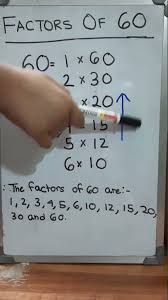 FACTORS OF 60
60= 1 × 60
2 × 30
× 20
15
5 × 12
6 × 10
∴ The factors of 60 are:-
1, 2, 3, 4, 5, 6, 10, 12, 15, 20,
30 and 60.